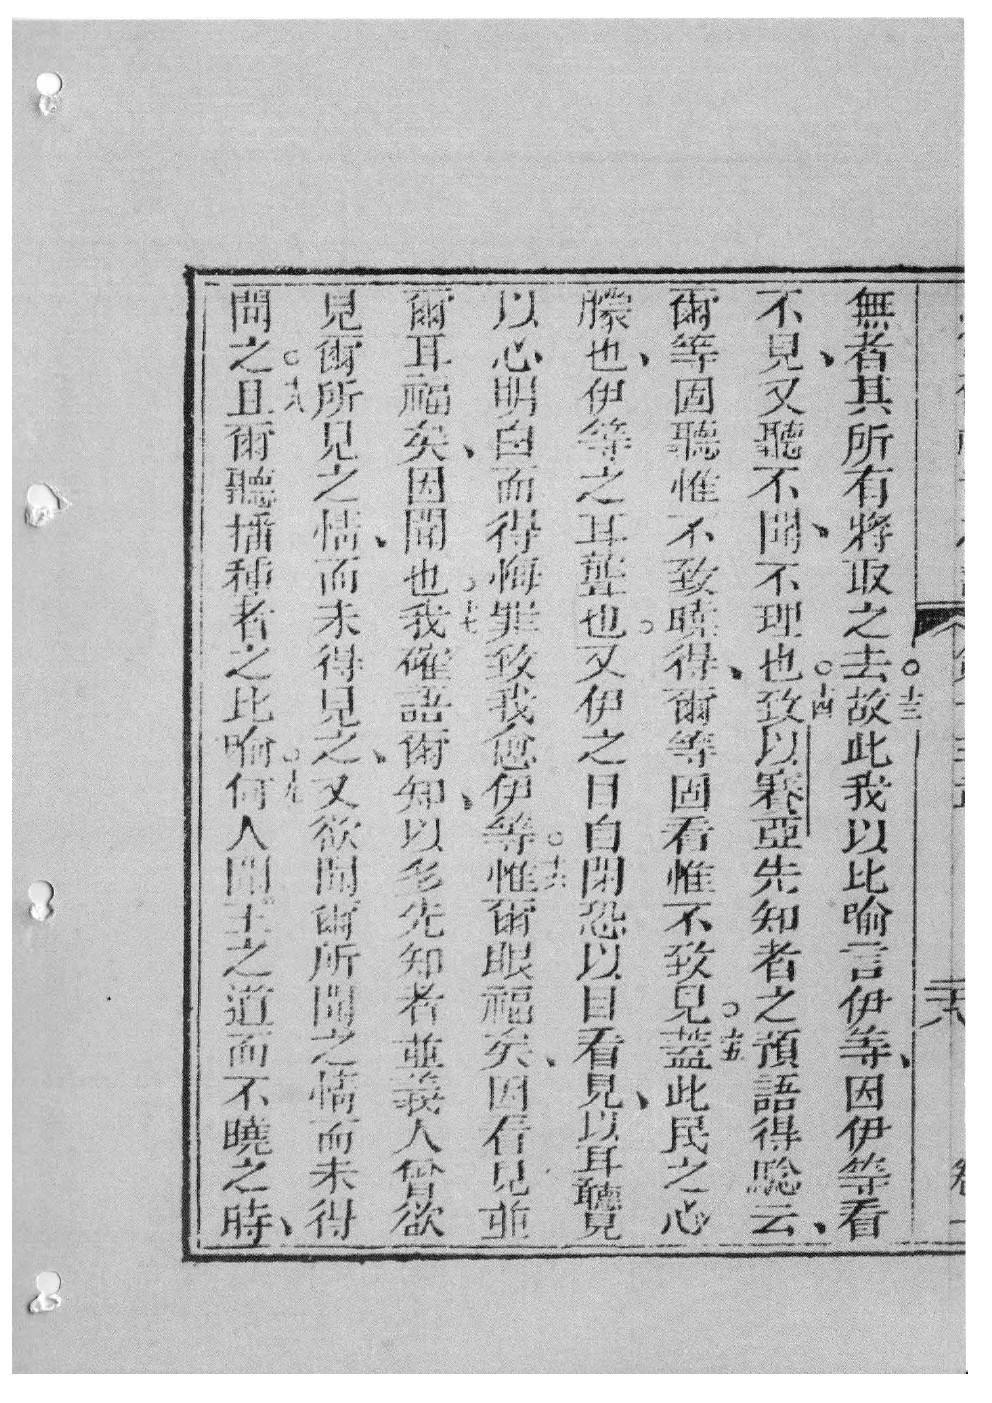 無者其所有將取之去○十三故此我以比喻言伊等、因伊等看
不見、又聽不聞、不理也○十四致以賽亞先知者之預語得驗云、
爾等固聽惟不致曉得、爾等固看惟不致見○十五蓋此民之心
朦也、伊等之耳聾也○又伊之目自閉恐以目看見、以耳聽覺
以心明白而得悔罪致我愈伊等○十六惟爾眼福矣、因看見並
爾耳福矣、因聞也○十七我確語爾知、以多先知者並義人曾欲
見爾所見之情、而未得見之、又欲聞爾所聞之情而未得
聞之○十八且爾聽播種者之比喻○十九何人聞王之道而不曉之時、